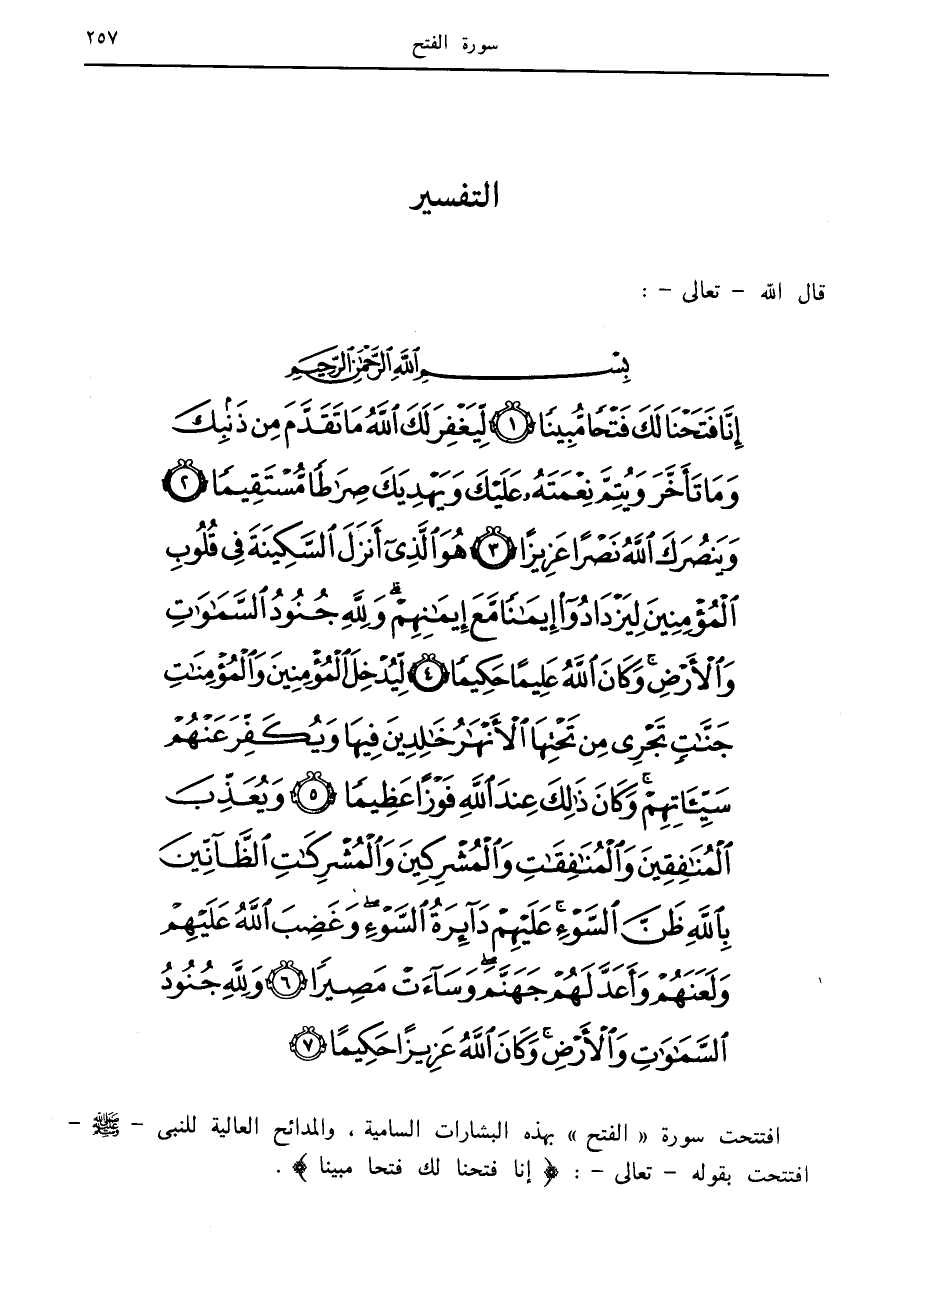 سورة الفتح ٢٥٧
التفسير
قال الله – تعالى – :
بِسْمِ ٱللَّهِ ٱلرَّحْمَٰنِ ٱلرَّحِيمِ
إِنَّا فَتَحْنَا لَكَ فَتْحًا مُّبِينًا ١ لِّيَغْفِرَ لَكَ ٱللَّهُ مَا تَقَدَّمَ مِن ذَنۢبِكَ
وَمَا تَأَخَّرَ وَيُتِمَّ نِعْمَتَهُۥ عَلَيْكَ وَيَهْدِيَكَ صِرَٰطًا مُّسْتَقِيمًا ٢
وَيَنصُرَكَ ٱللَّهُ نَصْرًا عَزِيزًا ٣ هُوَ ٱلَّذِىٓ أَنزَلَ ٱلسَّكِينَةَ فِى قُلُوبِ
ٱلْمُؤْمِنِينَ لِيَزْدَادُوٓا۟ إِيمَٰنًا مَّعَ إِيمَٰنِهِمْ ۗ وَلِلَّهِ جُنُودُ ٱلسَّمَٰوَٰتِ
وَٱلْأَرْضِ ۚ وَكَانَ ٱللَّهُ عَلِيمًا حَكِيمًا ٤ لِّيُدْخِلَ ٱلْمُؤْمِنِينَ وَٱلْمُؤْمِنَٰتِ
جَنَّٰتٍ تَجْرِى مِن تَحْتِهَا ٱلْأَنْهَٰرُ خَٰلِدِينَ فِيهَا وَيُكَفِّرَ عَنْهُمْ
سَيِّـَٔاتِهِمْ ۚ وَكَانَ ذَٰلِكَ عِندَ ٱللَّهِ فَوْزًا عَظِيمًا ٥ وَيُعَذِّبَ
ٱلْمُنَٰفِقِينَ وَٱلْمُنَٰفِقَٰتِ وَٱلْمُشْرِكِينَ وَٱلْمُشْرِكَٰتِ ٱلظَّآنِّينَ
بِٱللَّهِ ظَنَّ ٱلسَّوْءِ ۚ عَلَيْهِمْ دَآئِرَةُ ٱلسَّوْءِ ۖ وَغَضِبَ ٱللَّهُ عَلَيْهِمْ
وَلَعَنَهُمْ وَأَعَدَّ لَهُمْ جَهَنَّمَ ۖ وَسَآءَتْ مَصِيرًا ٦ وَلِلَّهِ جُنُودُ
ٱلسَّمَٰوَٰتِ وَٱلْأَرْضِ ۚ وَكَانَ ٱللَّهُ عَزِيزًا حَكِيمًا ٧
افتتحت سورة « الفتح » بهذه البشارات السامية ، والمدائح العالية للنبى – ﷺ –
افتتحت بقوله – تعالى – : ﴿ إنا فتحنا لك فتحا مبينا ﴾ .